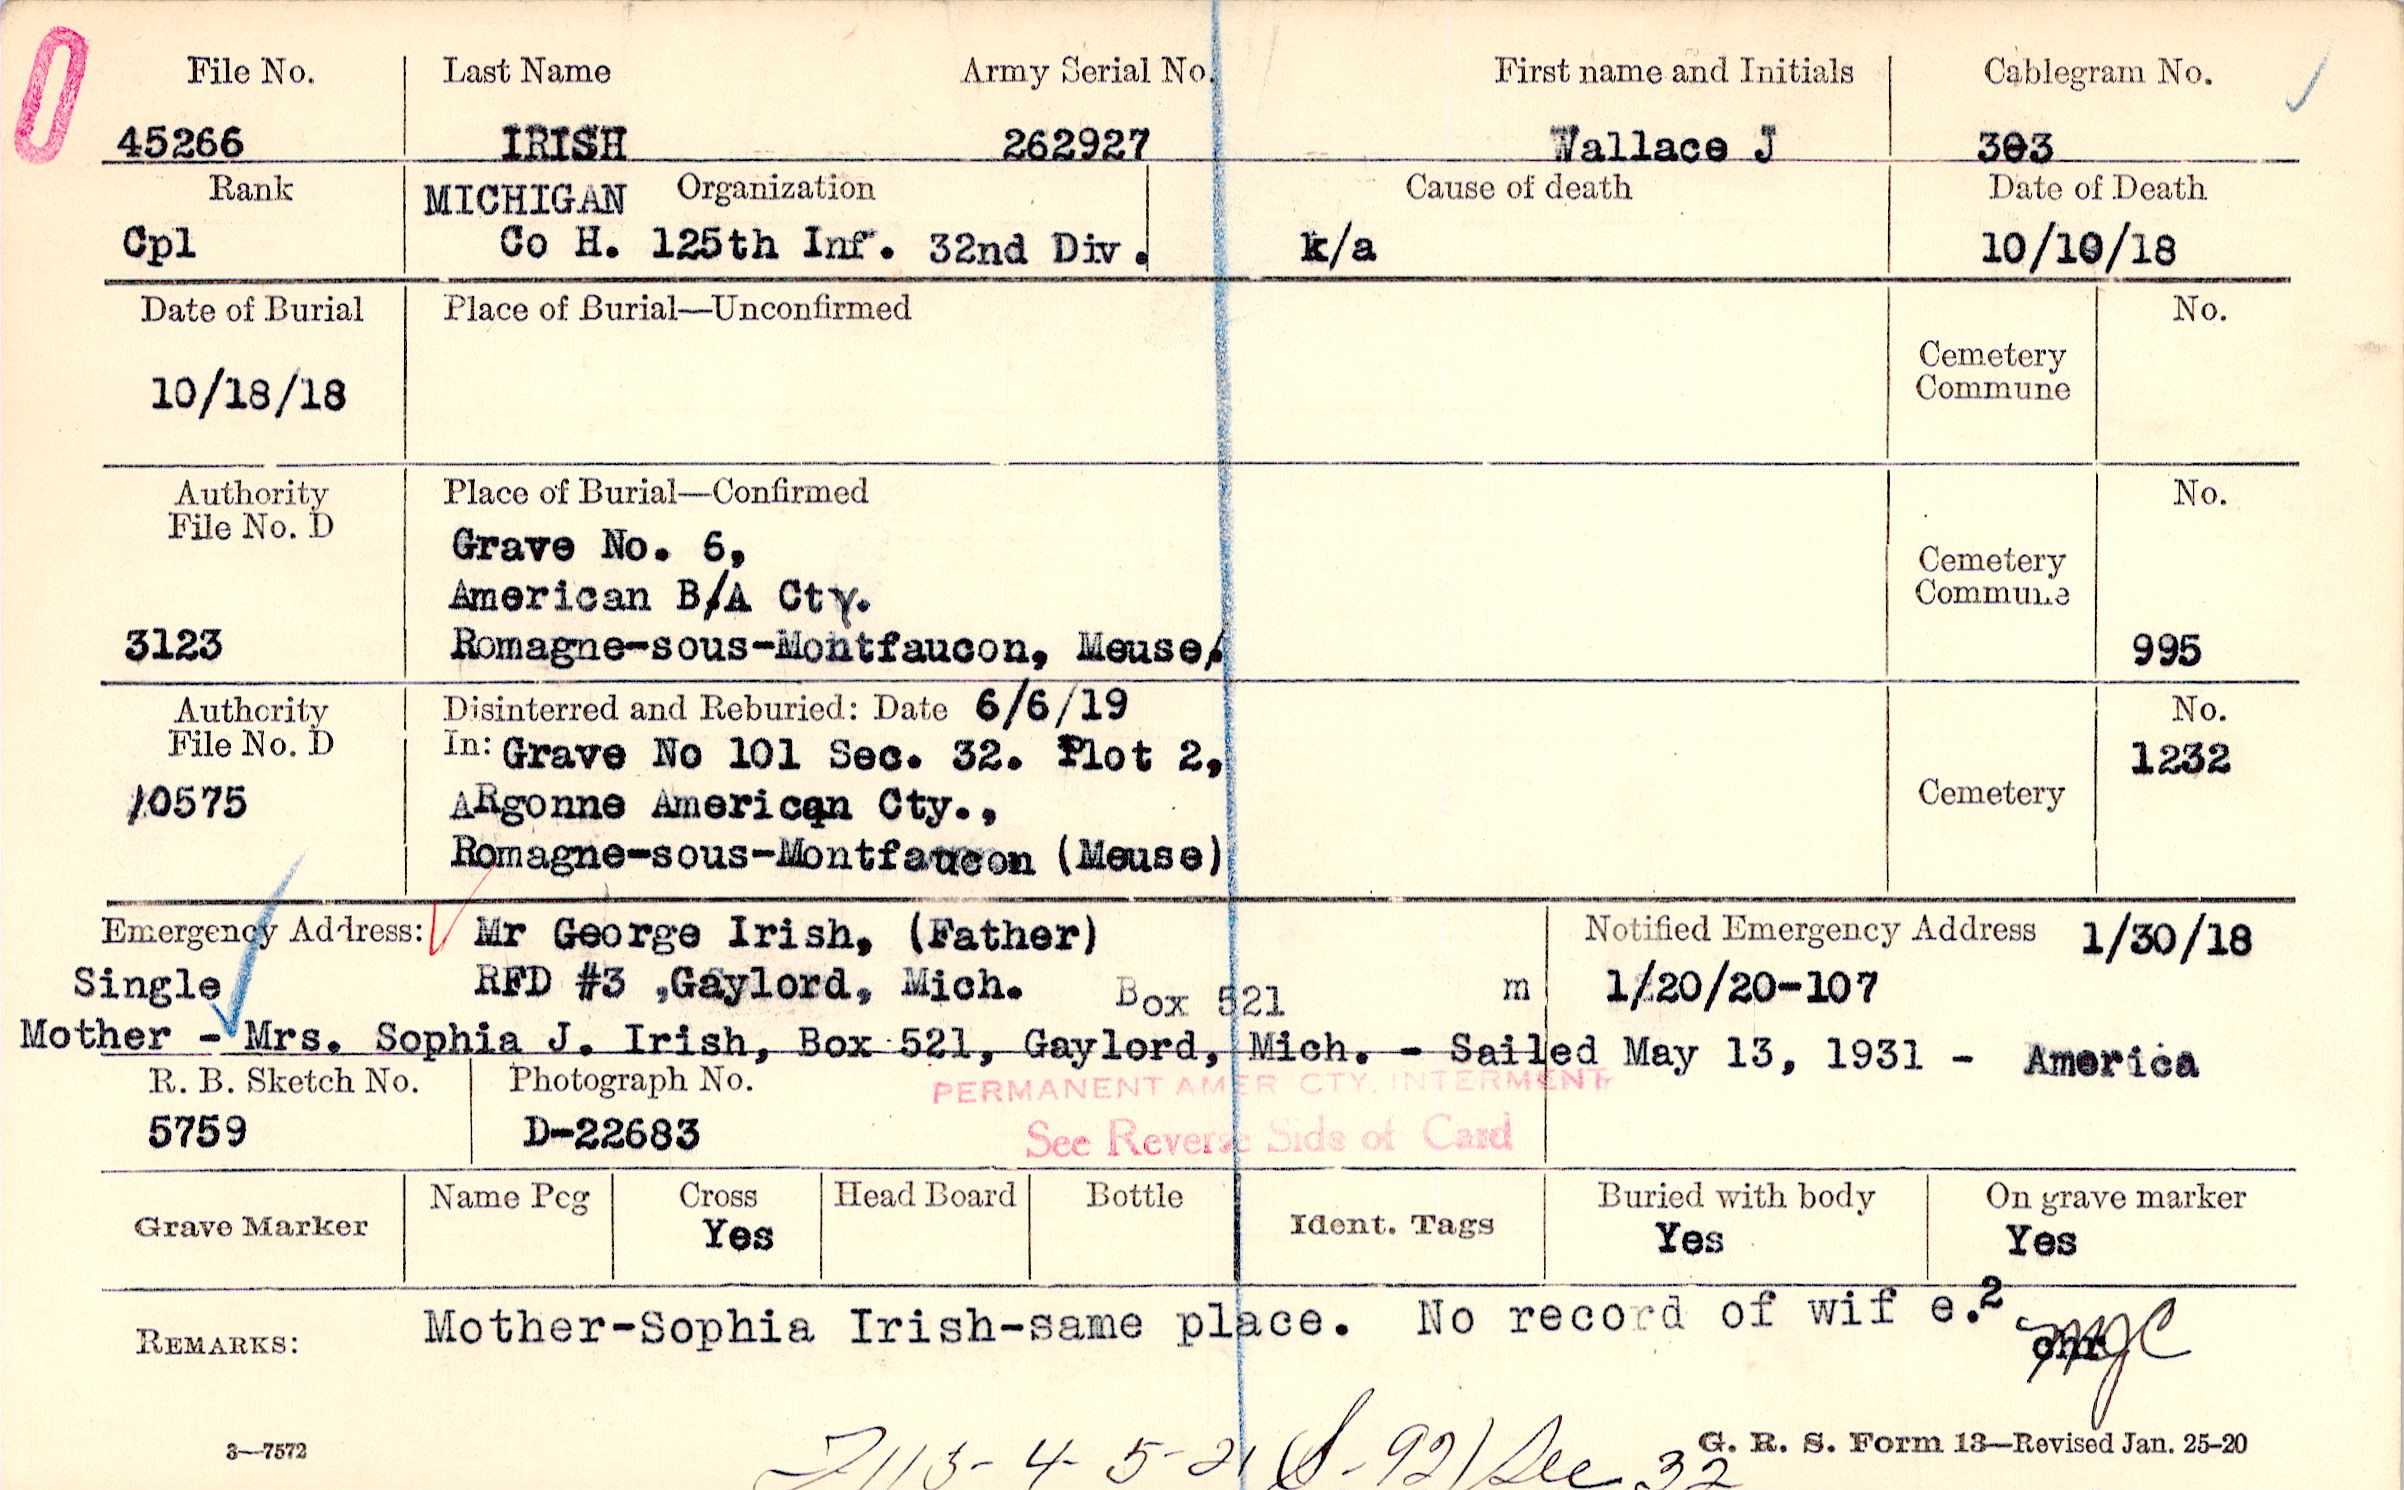 File No. Last Name Army Serial No. First name and Initials Cablegram No.
45266 IRISH 262927 Wallace J 303
Rank MICHIGAN Organization Cause of death Date of Death
Cpl Co H. 125th Inf. 32nd Div. k/a 10/10/18
Date of Burial Place of Burial—Unconfirmed No.
Cemetery
Commune
10/18/18
Authority Place of Burial—Confirmed No.
File No. D
Grave No. 6,
American B/A Cty. Cemetery
Commune
3123 Romagne-sous-Montfaucon, Meuse. 995
Authority Disinterred and Reburied: Date 6/6/19 No.
File No. D In: Grave No 101 Sec. 32. Plot 2, 1232
10575 ARgonne American Cty., Cemetery
Romagne-sous-Montfaucon (Meuse)
Emergency Address: Mr George Irish, (Father) Notified Emergency Address 1/30/18
Single RFD #3 ,Gaylord, Mich. Box 521 m 1/20/20-107
Mother - Mrs. Sophia J. Irish, Box 521, Gaylord, Mich. - Sailed May 13, 1931 - America
R. B. Sketch No. Photograph No. PERMANENT AMER CTY. INTERMENT
5759 D-22683 See Reverse Side of Card
Grave Marker Name Peg Cross Head Board Bottle Ident. Tags Buried with body On grave marker
Yes Yes Yes
REMARKS: Mother-Sophia Irish-same place. No record of wif e.2
chr
3—7572 G. R. S. Form 13—Revised Jan. 25-20
4-5-21 Sec 32